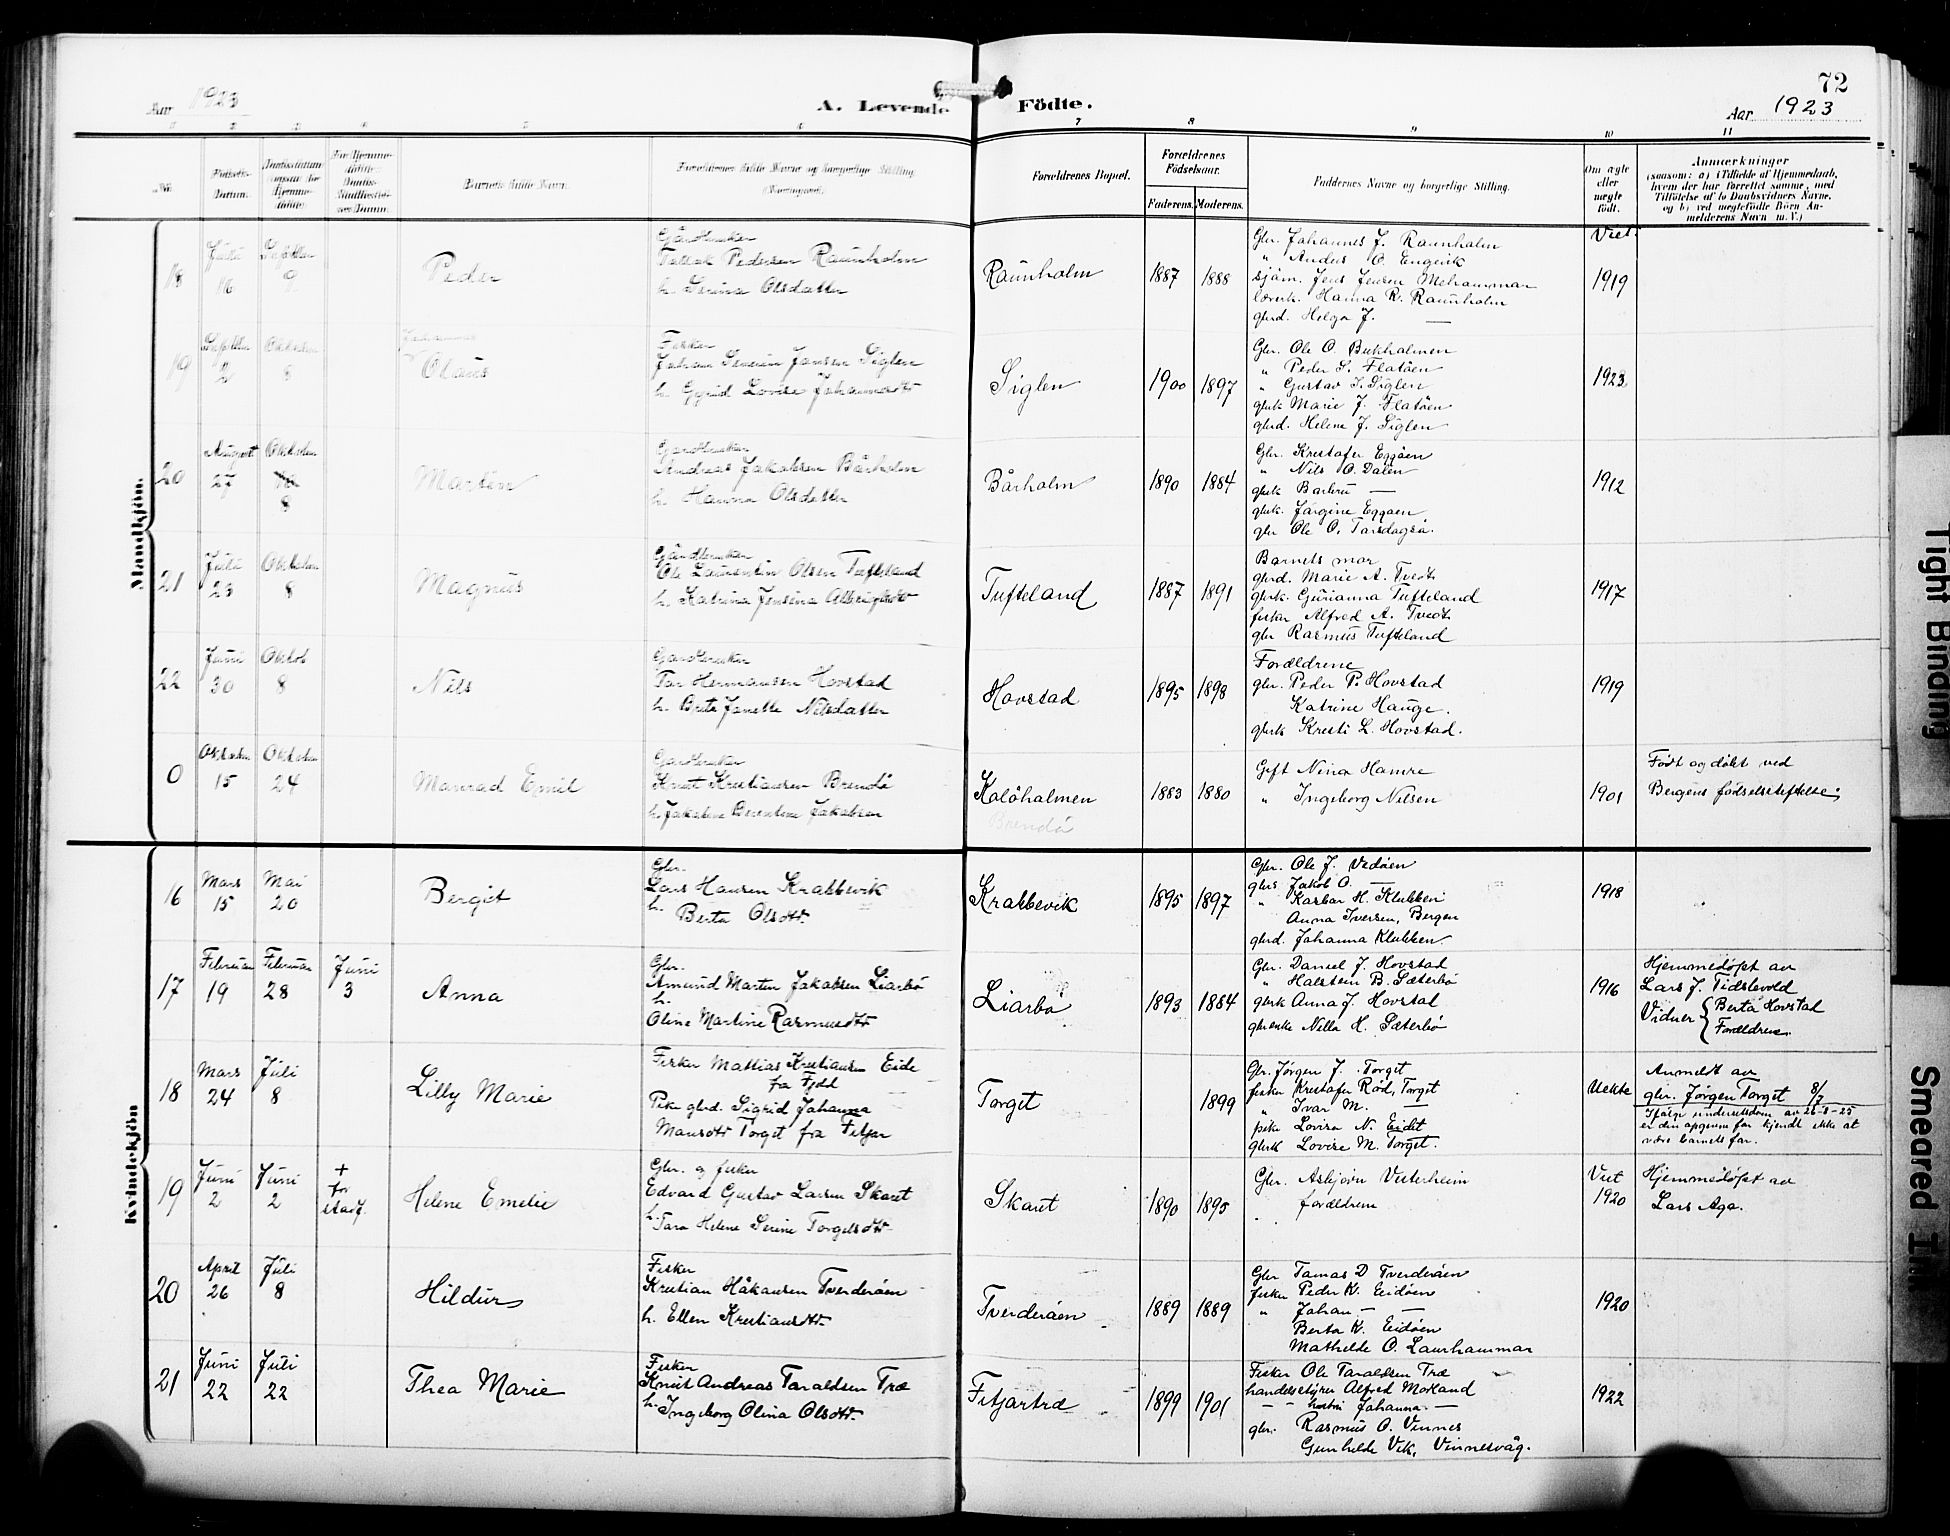 72
Aar 1923
A. Levende Födte.
Aar 1923
1 2 3 4 5 6 7 8 9 10 11
No.
Födsels-
Datum.
Barnets fulde Navn.
Forældrenes fulde Navne og borgerlige Stilling.
Forældrenes Bopæl.
Forældrenes
Födselsaar.
Faderens. Moderens.
Faddernes Navne og borgerlige Stilling.
Om ægte
eller
uægte
födt.
Anmærkninger
(saasom: a) i Tilfælde af Hjemmedaab,
hvem der har forrettet samme, med
Tilföielse af to Daabsvidners Navne,
og b) ved uegtefödte Börn An-
melderens Navn m. V.)
Mandkjön.
18
Juli
16
9
Peder
Gårdbruker
Pedersen Raunholm
h. Serina Olsdatter
Raunholm
1887 1888
Gbr. Johannes J. Raunholm
" Anders O. Engevik
sjöm. Jens Jensen Mehammar
lærerk. Hanna R. Raunholm
gbrd. Helga J. —
Viet
1919
19
2
Oktober
8
Olaus
Fisker
Johan Severin Jansen Siglen
h. Gyrid Lovise Johannesdtr
Siglen
1900 1897
Gbr. Ole O. Bukholmen
" Peder S. Flatöen
" Gustav J. Siglen
gbrk Marie J. Flatöen
gbrd. Helene J. Siglen
1923
20
August
27
Oktober
8
Martin
Gardbruker
Andreas Jakobsen Bårholm
h. Hanna Olsdatter
Bårholm
1890 1884
Gbr. Kristofer Eggöen
" Nils O. Dalen
gbrk Barbru —
gbrk. Jørgine Eggöen
gbr Ole O.
1912
21
Juli
23
Oktober
8
Magnus
Gårdbruker
Ole Laurentin Olsen Tufteland
h. Katrina Jensina Albrigtsdtr
Tufteland
1887 1891
Barnets mor
gbrd. Marie A. Tvedt
gbrk. Gurianna Tufteland
fisker Alfred A. Tvedt
gbr Rasmus Tufteland
1917
22
Juni
30
Oktob
8
Nils
Gardbruker
Tor Hermansen Hovstad
h. Brita Janette Nilsdatter
Hovstad
1895 1898
Forældrene
gbr. Peder P. Hovstad
Katrine Hauge.
gbrk Kristi L. Hovstad.
1919
0
Oktober
15
Oktober
24
Monrad Emil
Gardbruker
Knut Kristiansen Brendö
h. Jakobine Berentine Jakobsen
Kalöholmen
Brendö
1883 1880
Gift Nina Hamre
" Ingeborg Nilsen
1901
Født og døbt ved
Bergens fødselsstiftelse.
Kvindekjön
16
Mars
15
Mai
20
Bergit
Gbr.
Lars Hansen Krabbevik
h.
Berta Olsdtr.
Krabbevik
1895 1897
Gbr. Ole J. Vedöen
gbrs Jakob O. —
" Kasbar H. Klubben
Anna Iversen, Bergen
gbrd. Johanna Klubben.
1918
17
Februar
19
Februar
28
Juni
3
Anna
Gbr.
Amund Martin Jakobsen Liarbö
h.
Oline Martine Rasmusdtr
Liarbö
1893 1884
Gbr. Daniel J. Hovstad
" Halstein B. Sæterbö
gbrk Anna J. Hovstad
gbrenke Nilla H. Sæterbö
1916
Hjemmedöpt av
Lars J. Tislevold
Vidner { Berta Hovstad
Forældrene.
18
Mars
24
Juli
8
Lilly Marie
Fisker Mattias Kristiansen Eide
fra Fjeld
Pike gbrd. Sigrid Johanna
Monsdtr Torget fra Fitjar
Torget
1899
Gbr. Jørgen J. Torget
fisker Kristofer Rød, Torget
" Ivar M. —
pike Lovisa N. Eidet
gbrk Lovise M. Torget.
Uekte
Anmeldt av
gbr. Jørgen Torget 8/7
Ifølge underretsdom av 26-8-25
er den opgivne far kjendt ikke at
være barnets far.
19
Juni
2
Juni
2
+
før
stadf.
Helene Emelie
Gbr. og fisker
Edvard Gustav Larsen Skaret
h.
Tora Helene Serine Torgelsdtr.
Skaret
1890 1895
Gbr. Asbjørn Vesterheim
forældrene
Viet
1920
Hjemmedöpt av
Lars Aga.
20
April
26
Juli
8
Hildur
Fisker
Kristian Håkonsen Tverderöen
h. Ellen Kristiansdtr.
Tverderöen
1889 1889
Gbr Tomas D Tverderöen
fisker Peder K. Eidöen
" Johan — —
Berta K. Eidöen
Mathilde O. Laurhammar
1920
21
Juni
22
Juli
22
Thea Marie
Fisker
Knut Andreas Taraldsen Træ
h. Ingeborg Olina Olsdtr.
Fitjartræ
1899 1901
Fisker Ole Taraldsen Træ
handelsstyrer Alfred Morland
— " — hustru Johanna —
gbr. Rasmus O. Vinnes
Gunhilde Vik, Vinnesvåg.
1922
Tight Binding
Smeared Ink